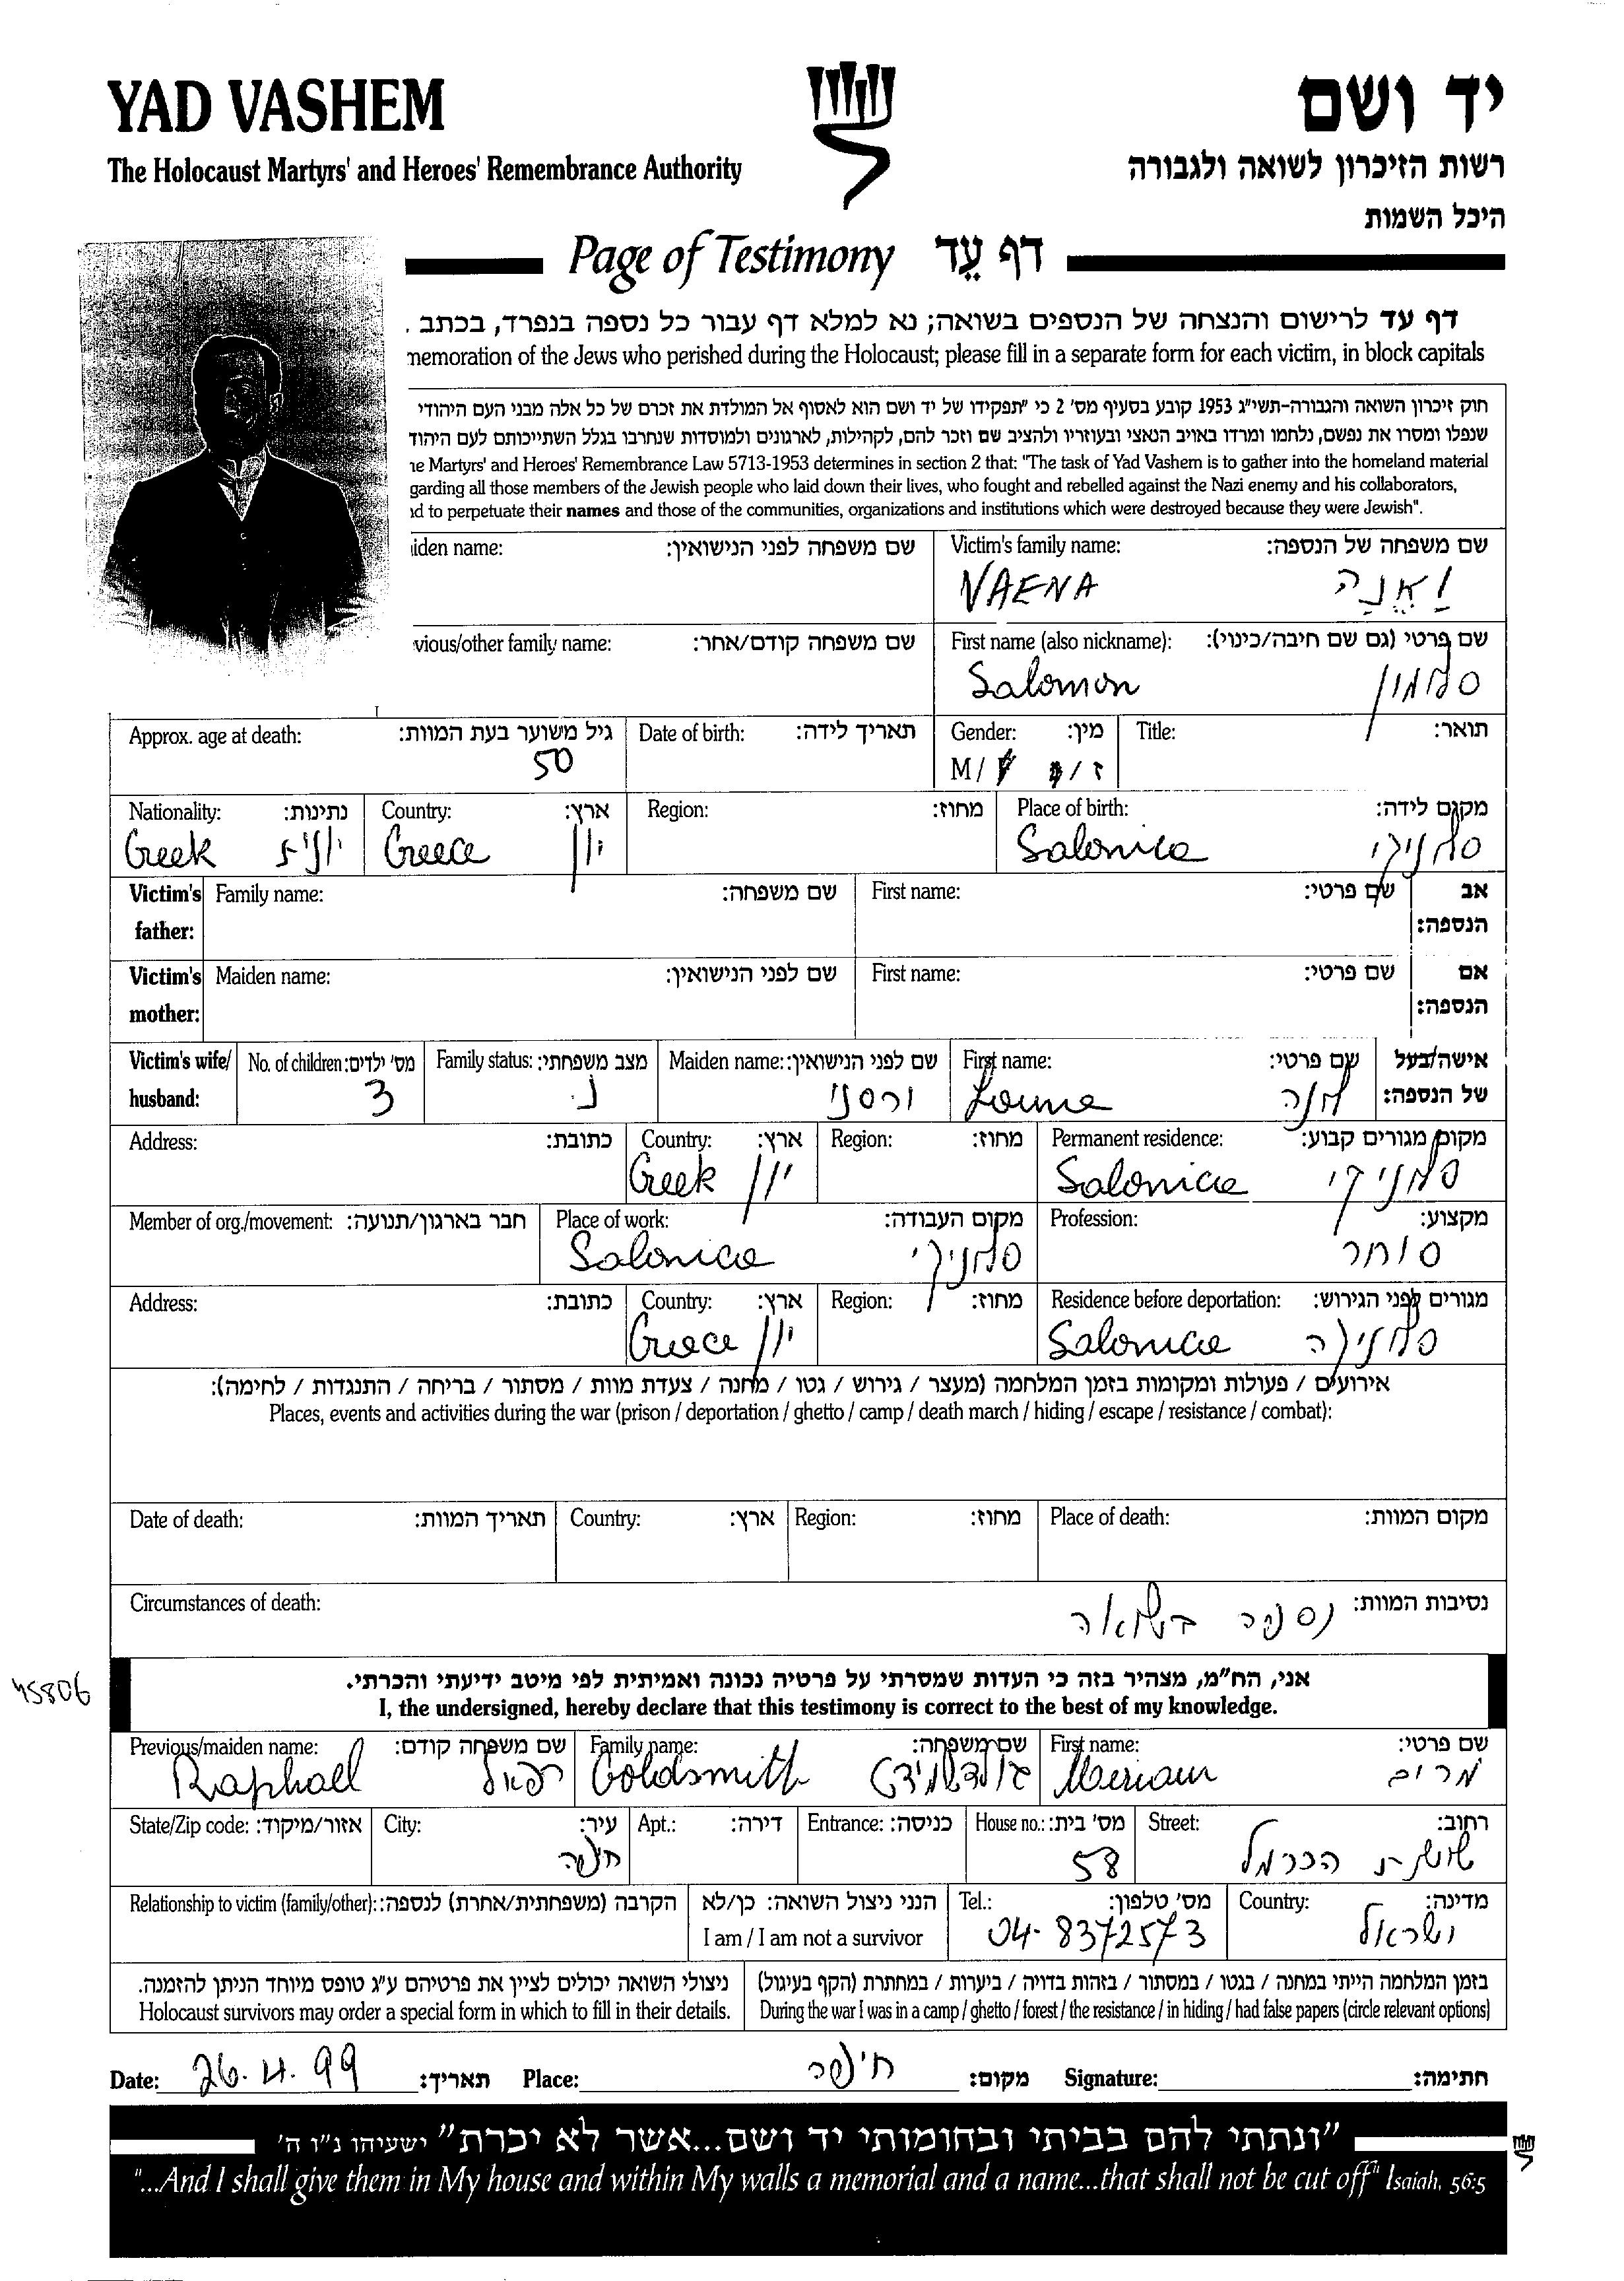 YAD VASHEM יד ושם
The Holocaust Martyrs' and Heroes' Remembrance Authority רשות הזיכרון לשואה ולגבורה
היכל השמות
Page of Testimony דף עֵד
דף עד לרישום והנצחה של הנספים בשואה; נא למלא דף עבור כל נספה בנפרד, בכתב .
memoration of the Jews who perished during the Holocaust; please fill in a separate form for each victim, in block capitals
חוק זיכרון השואה והגבורה-תשי"ג 1953 קובע בסעיף מס' 2 כי "תפקידו של יד ושם הוא לאסוף אל המולדת את זכרם של כל אלה מבני העם היהודי
שנפלו ומסרו את נפשם, נלחמו ומרדו באויב הנאצי ובעוזריו ולהציב שם וזכר להם, לקהילות, לארגונים ולמוסדות שנחרבו בגלל השתייכותם לעם היהוד
ne Martyrs' and Heroes' Remembrance Law 5713-1953 determines in section 2 that: "The task of Yad Vashem is to gather into the homeland material
garding all those members of the Jewish people who laid down their lives, who fought and rebelled against the Nazi enemy and his collaborators,
nd to perpetuate their names and those of the communities, organizations and institutions which were destroyed because they were Jewish".
iden name: שם משפחה לפני הנישואין: Victim's family name: שם משפחה של הנספה:
VAENA וַאֶנָה
vious/other family name: שם משפחה קודם/אחר: First name (also nickname): שם פרטי (גם שם חיבה/כינוי):
Salomon סלומון
Approx. age at death: גיל משוער בעת המוות: Date of birth: תאריך לידה: Gender: מין: Title: תואר:
50 M/ ז/
Nationality: נתינות: Country: ארץ: Region: מחוז: Place of birth: מקום לידה:
Greek יוונית Greece יוון Salonica סלוניקי
Victim's father: Family name: שם משפחה: First name: שם פרטי: אב הנספה:
Victim's mother: Maiden name: שם לפני הנישואין: First name: שם פרטי: אם הנספה:
Victim's wife/ No. of children: מס' ילדים: Family status: מצב משפחתי: Maiden name: שם לפני הנישואין: First name: שם פרטי: אישה/בעל
husband: 3 נ. ורסנו לונה של הנספה:
Address: כתובת: Country: ארץ: Region: מחוז: Permanent residence: מקום מגורים קבוע:
Greek יוון Salonica סלוניקי
Member of org./movement: חבר בארגון/תנועה: Place of work: מקום העבודה: Profession: מקצוע:
Salonica סלוניקי סוחר
Address: כתובת: Country: ארץ: Region: מחוז: Residence before deportation: מגורים לפני הגירוש:
Greece יוון Salonica סלוניקה
אירועים / פעולות ומקומות בזמן המלחמה (מעצר / גירוש / גטו / מחנה / צעדת מוות / מסתור / בריחה / התנגדות / לחימה):
Places, events and activities during the war (prison / deportation / ghetto / camp / death march / hiding / escape / resistance / combat):
Date of death: תאריך המוות: Country: ארץ: Region: מחוז: Place of death: מקום המוות:
Circumstances of death: נסיבות המוות:
נספה בשואה
אני, הח"מ, מצהיר בזה כי העדות שמסרתי על פרטיה נכונה ואמיתית לפי מיטב ידיעתי והכרתי.
45806
I, the undersigned, hereby declare that this testimony is correct to the best of my knowledge.
Previous/maiden name: שם משפחה קודם: Family name: שם משפחה: First name: שם פרטי:
Raphael רפאל Goldsmith גולדשמידט Meriam מרים
State/Zip code: אזור/מיקוד: City: עיר: Apt.: דירה: Entrance: כניסה: House no.: מס' בית: Street: רחוב:
חיפה 58 שושנת הכרמל
Relationship to victim (family/other): הקרבה (משפחתית/אחרת) לנספה: הנני ניצול השואה: כן/לא Tel.: מס' טלפון: Country: מדינה:
I am / I am not a survivor 04-8372573 ישראל
ניצולי השואה יכולים לציין את פרטיהם ע"ג טופס מיוחד הניתן להזמנה. בזמן המלחמה הייתי במחנה / בגטו / במסתור / בזהות בדויה / ביערות / במחתרת (הקף בעיגול)
Holocaust survivors may order a special form in which to fill in their details. During the war I was in a camp / ghetto / forest / the resistance / in hiding / had false papers (circle relevant options)
Date: 26.4.99 תאריך: Place: חיפה מקום: Signature: חתימה:
"ונתתי להם בביתי ובחומותי יד ושם...אשר לא יכרת" ישעיהו נ"ו ה'
"...And I shall give them in My house and within My walls a memorial and a name...that shall not be cut off" Isaiah, 56:5